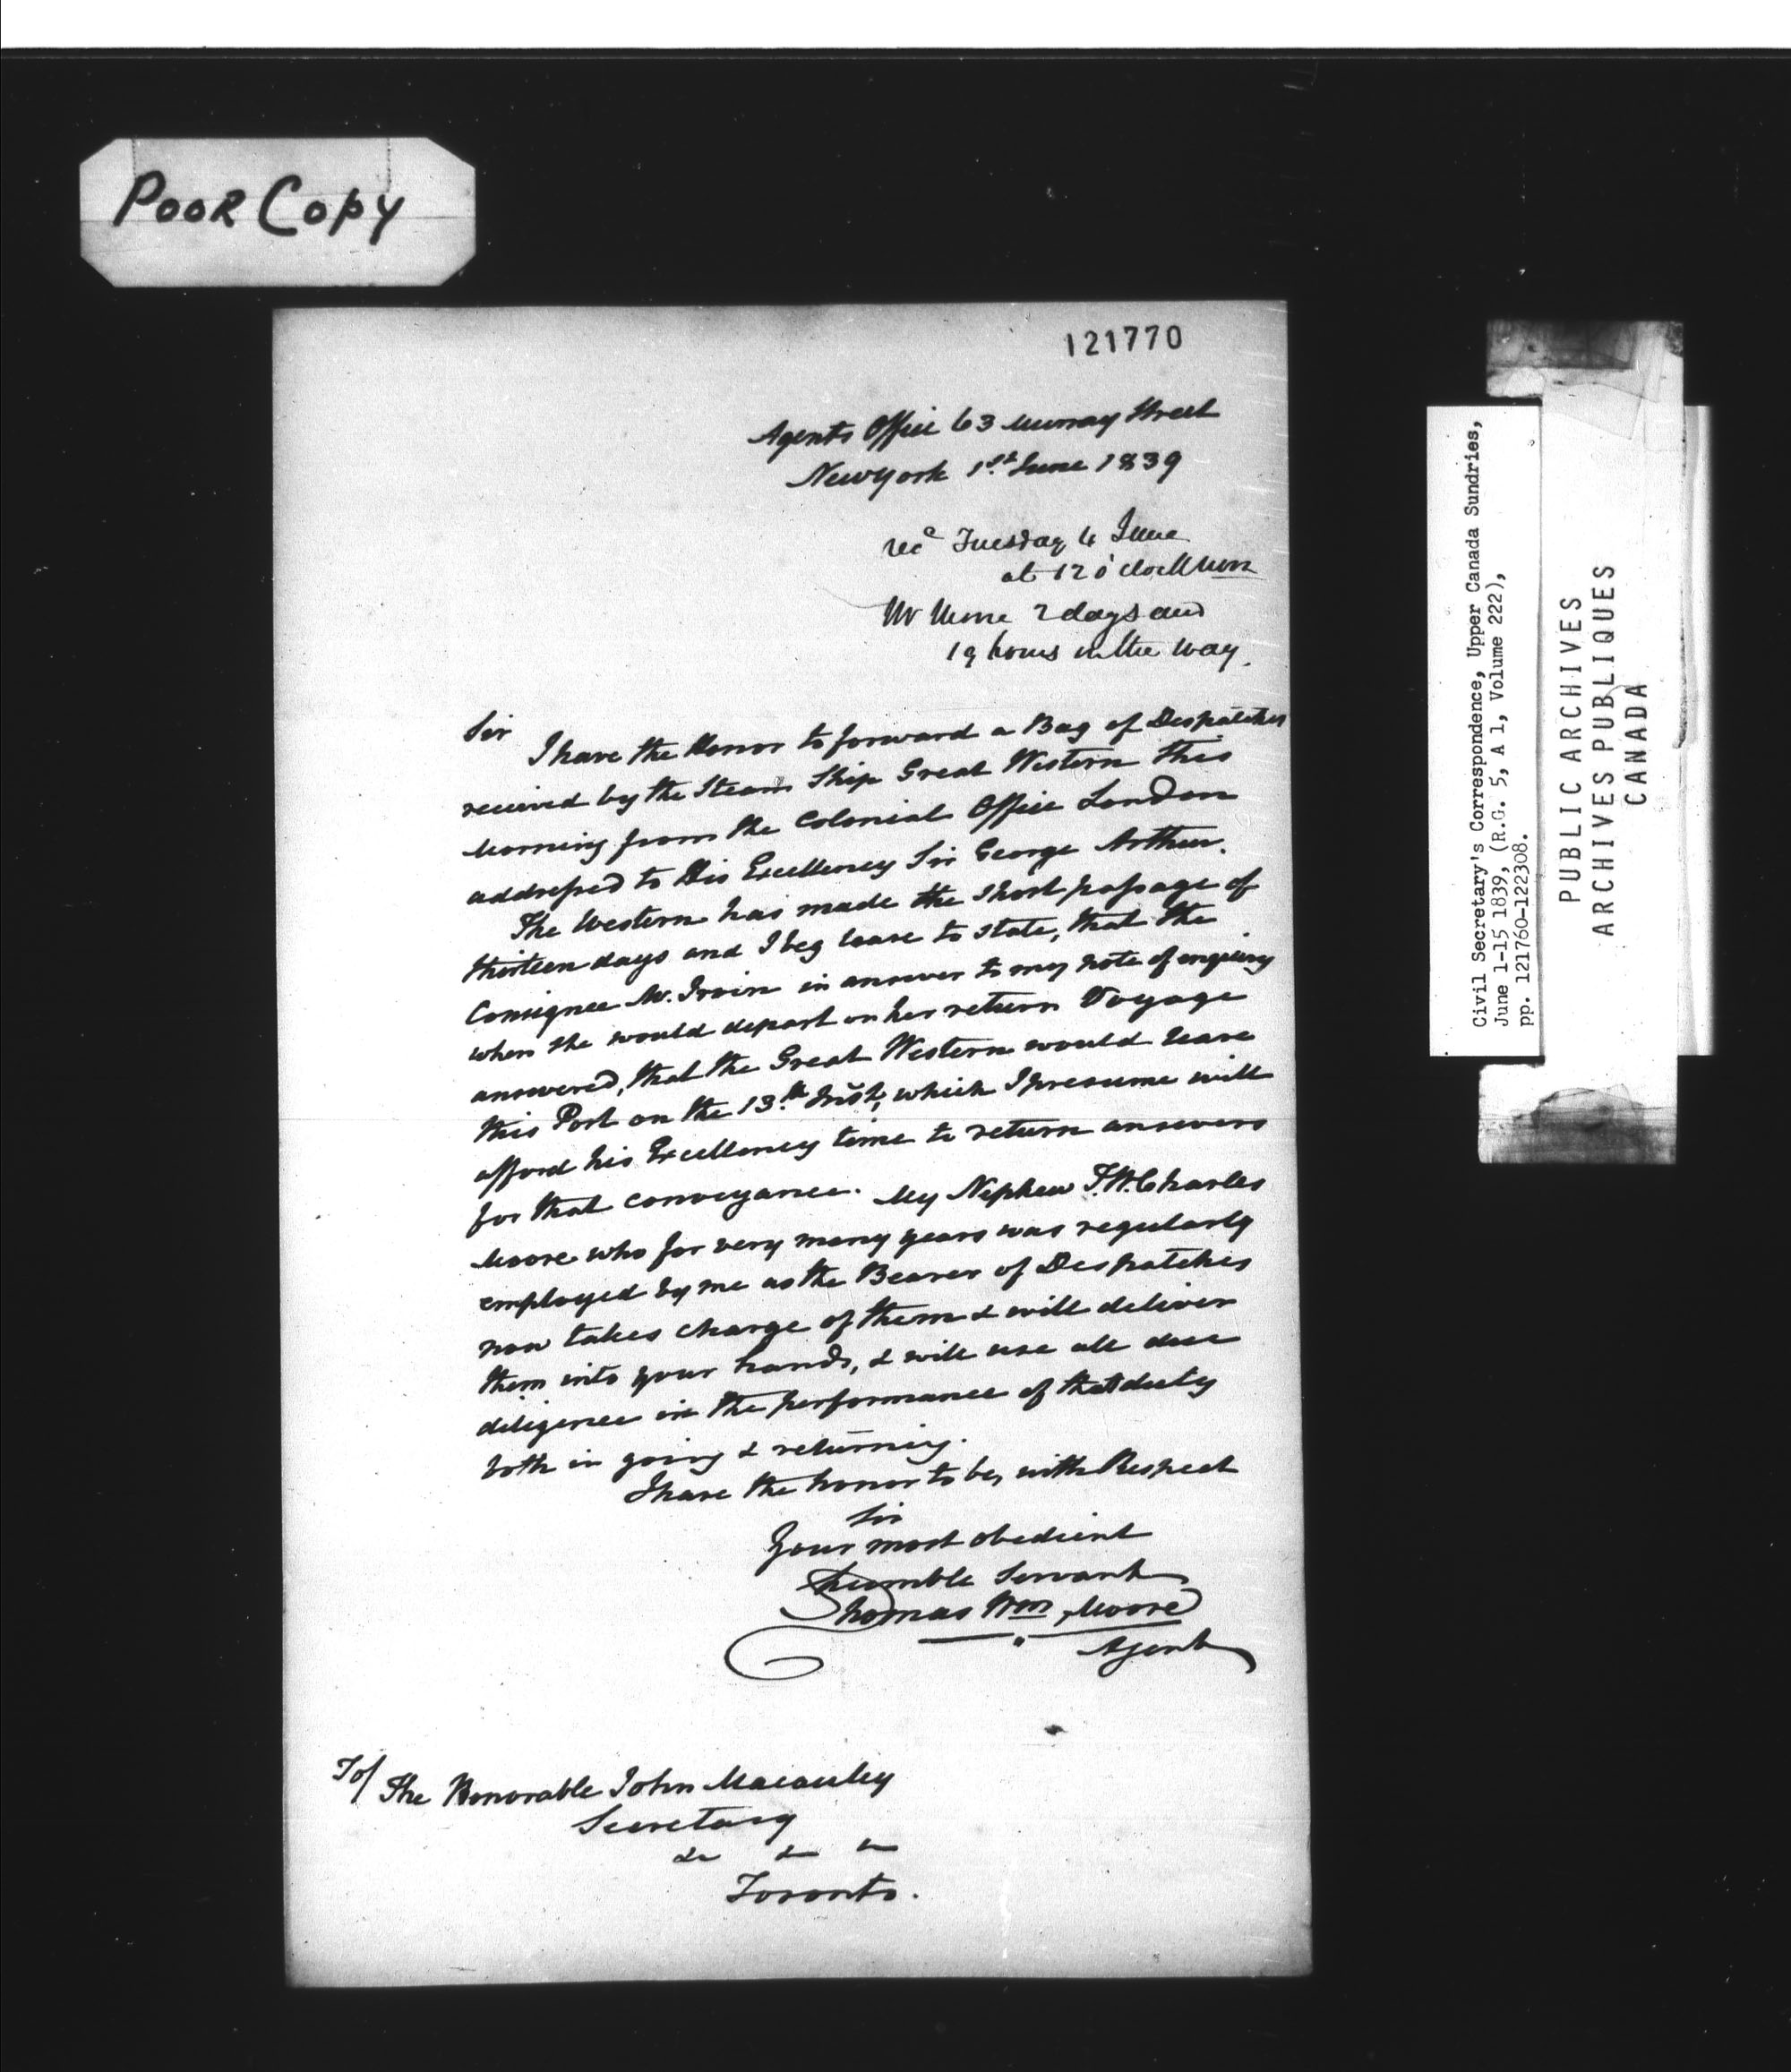 POOR COPY
121770
Agents Office 63 Murray Street
New York 1st June 1839
recd Tuesday 4 June
at 12 o'clock noon
Mr Moore 2 days and
19 hours on the way.
Sir
I have the Honor to forward a Bag of Despatches
received by the Steam Ship Great Western this
morning from the Colonial Office London
addressed to His Excellency Sir George Arthur.
The Western has made the short passage of
thirteen days and I beg leave to state, that the
Consignee Mr. Irvin in answer to my note of enquiry
when she would depart on her return Voyage
answered, that the Great Western would leave
this Port on the 13th Inst, which I presume will
afford his Excellency time to return answers
for that conveyance. My Nephew T.W. Charles
Moore who for very many years was regularly
employed by me as the Bearer of Despatches
now takes charge of them & will deliver
them into your hands, & will use all due
diligence in the performance of that duty
both in going & returning.
I have the honor to be, with Respect
Sir
Your most obedient
humble Servant
Thomas Wm Moore
Agent
To/ The Honorable John Macauley
Secretary
&c &c &c
Toronto.
Civil Secretary's Correspondence, Upper Canada Sundries,
June 1-15 1839, (R.G. 5, A 1, Volume 222),
pp. 121760-122308.
PUBLIC ARCHIVES
ARCHIVES PUBLIQUES
CANADA